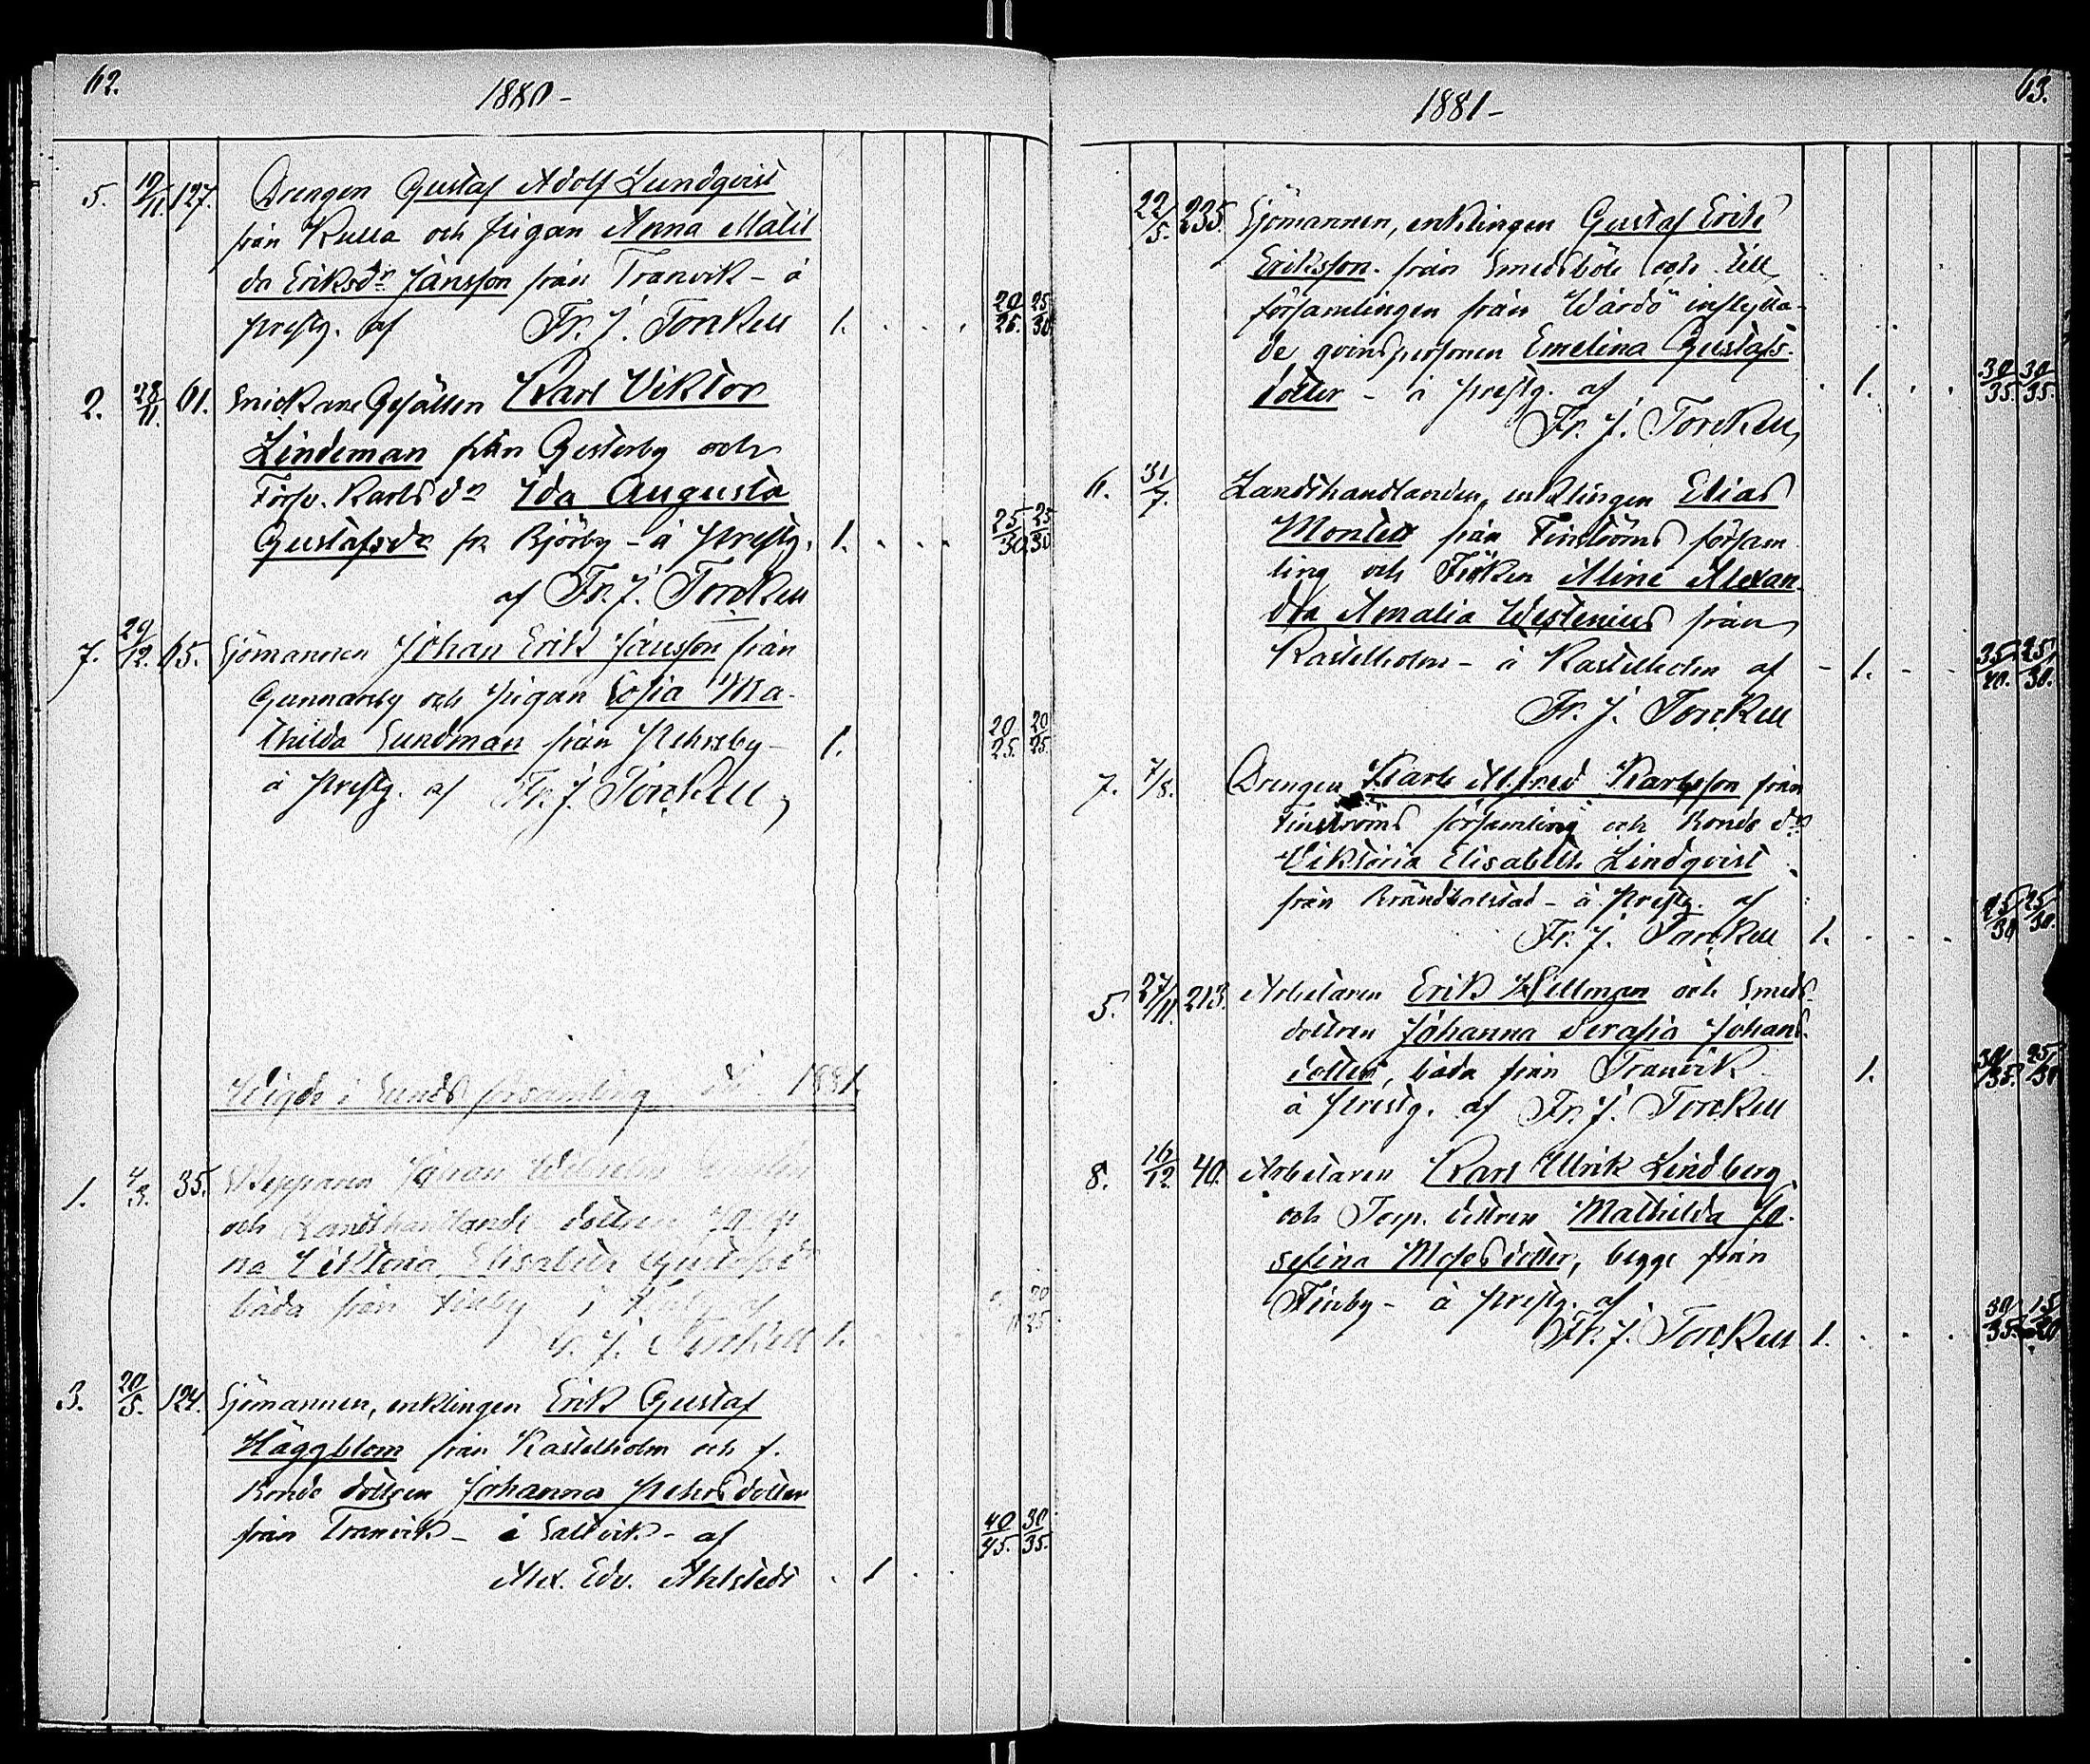 62.
1880-
5. 10/11. 127. Drengen Gustaf Adolf Lundqvist
från Kulla och pigan Anna Matil
da Eriksdr Jansson från Tranvik - å
prestg. af Fr. J. Torckell 1. 20/25. 25/30
2. 28/11. 61. Snickare Gesällen Karl Viktor
Lindeman från Gesterby och
Torp. Karlsdr Ida Augusta
Gustafsdr fr. Björby - å prestg. 1. 25/30 25/30
af Fr. J. Torckell
7. 29/12. 65. Sjömannen Johan Erik Jansson från
Gunnarsby och pigan Sofia Ma-
thilda Sundman från Pehrsby - 1. 20/25. 20/25.
å prestg. af Fr. J. Torckell
Wigde i Sunds församling år 1881.
1. 4/3. 35. Skepparen Johan Wilhelm
och Landthandlande dottren
na Viktoria Elisabeth Gustafsdr
båda från Finby i af
Fr. J. Torckell 1. 20/25
3. 20/5. 124. Sjömannen, enklingen Erik Gustaf
Häggblom från Kastelholm och f.
Bonde dottren Johanna Pehrsdotter
från Tranvik - i Saltvik - af 40/45. 30/35.
Alex. Edv. Ahlstedt 1
63.
1881-
22/5. 235. Sjömannen, enklingen Gustaf Erik
Eriksson från Smedsböle och till
församlingen från Wårdö inflytta-
de qvinspersonen Emelina Gustafs-
dotter - å prestg. af 1. 30/35. 30/35.
Fr. J. Torckell
6. 31/7. Landthandlanden, enklingen Elias
Montell från Finströms försam
ling och Fröken Aline Alexan
dra Amalia Westenius från
Kastelholm - å Kastelholm af 1. 35/40. 25/30.
Fr. J. Torckell
7. 7/8. Drengen Karl Alfred Karlsson från
Finströms församling och Bonde dr
Viktoria Elisabeth Lindqvist
från Brändbolstad - å prestg. af 25/30 25/30.
Fr. J. Torckell 1.
5. 27/11. 213. Arbetaren Erik Hellman och Smeds-
dottren Johanna Serafia Johans-
dotter, båda från Tranvik 1. 30/35. 25/30
å prestg. af Fr. J. Torckell
8. 16/12. 40. Arbetaren Karl Ulrik Lindberg
och Torp. dottren Mathilda Jo-
sefina Mosesdotter, begge från
Finby - å prestg. af
Fr. J. Torckell 1. 30/35. 15/20